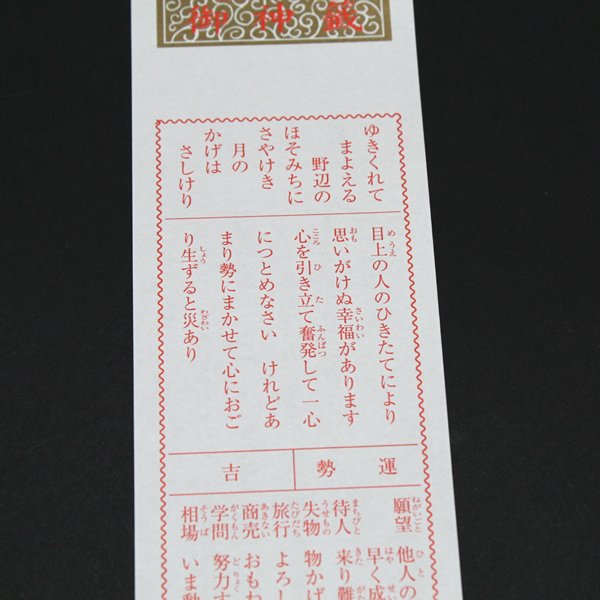 御神籤
ゆきくれて
まよえる
野辺の
ほそみちに
さやけき
月の
かげは
さしけり
目上の人のひきたてにより
思いがけぬ幸福があります
心を引き立て奮発して一心
につとめなさい けれどあ
まり勢にまかせて心におご
り生ずると災あり
運勢 吉
願望 他人の
早く成
待人 来り難
失物 物かげ
旅行 よろし
商売 おもわ
学問 努力す
相場 いま